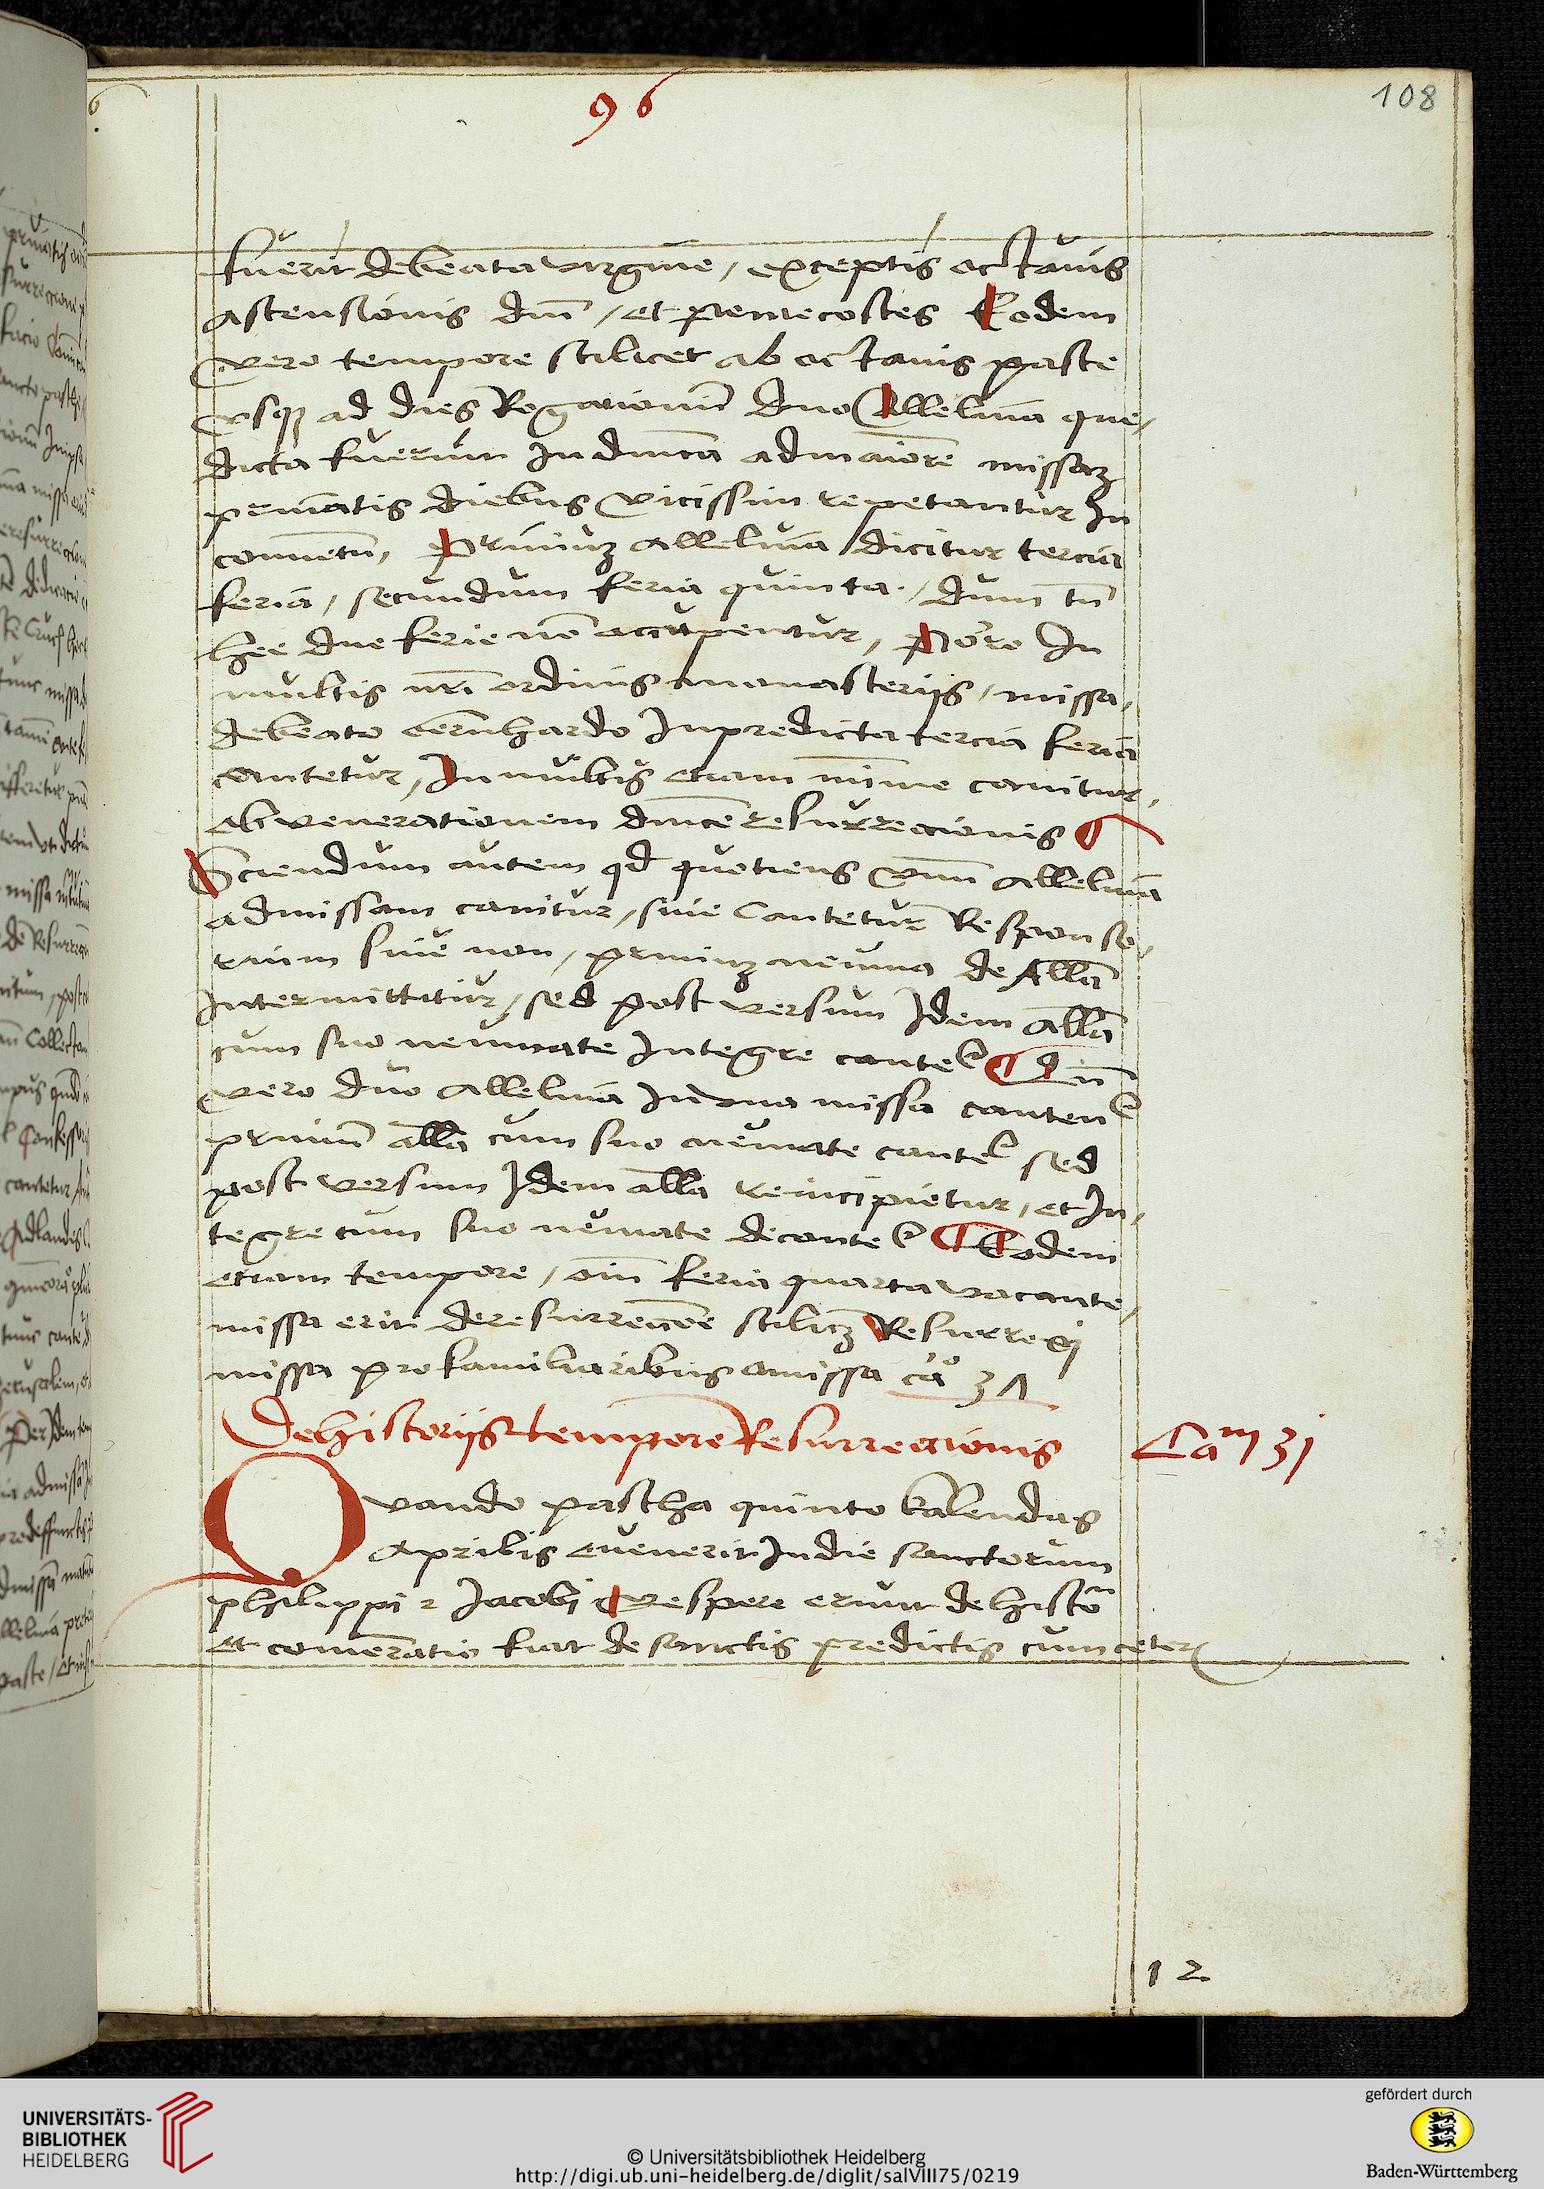 96
108
fuerit de beata virgine, exceptis octauis
ascensionis dni /et Pentecostes Eodem
vero tempore scilicet ab octauis pasce
vsq ad dies Rogacionum duo Alleluia que
dicta fuerunt In dnica ad maiore missaz
priuatis diebus vicissim repetantur In
conuetu, Primuz alleluia dicitur tercia
feria, secundum feria quinta, dum tn
hee due ferie no occupentur, Porro In
multis nri ordinis monasterijs, missa
de beato Bernhardo In predicta tercia feria
cantetur, In multis etiam minime canitur
ob veneracionem dnice resurreccionis
Sciendum autem qd quotiens vnum alleluia
ad missam canitur, siue Cantetur Responso
rium siue non, primuz neuma de Alla
Intermittitur, sed post versum Idem alla
cum suo neumate Integre cantet
vero duo alleluia In vna missa canten
primum alla cum suo neumate cantet sed
post versum Idem alla reincipietur, et In
tegre cum suo neumate decantet Eodem
etiam tempore, omi feria quarta vacante,
missa erit de resurreccoe scilicz Resurrexi
missa pro familiaribus omissa ca° 31
De historijs tempore Resurreccionis
Cam 31
Quando pascha quinto kalendas
Aprilis euenerit In die sanctorum
philippi 2 Jacobi vespere erunt de histo
et comeracio fiat de sanctis predictis cum ceter
12
UNIVERSITÄTS-
BIBLIOTHEK
HEIDELBERG
© Universitätsbibliothek Heidelberg
http://digi.ub.uni-heidelberg.de/diglit/salVIII75/0219
gefördert durch
Baden-Württemberg